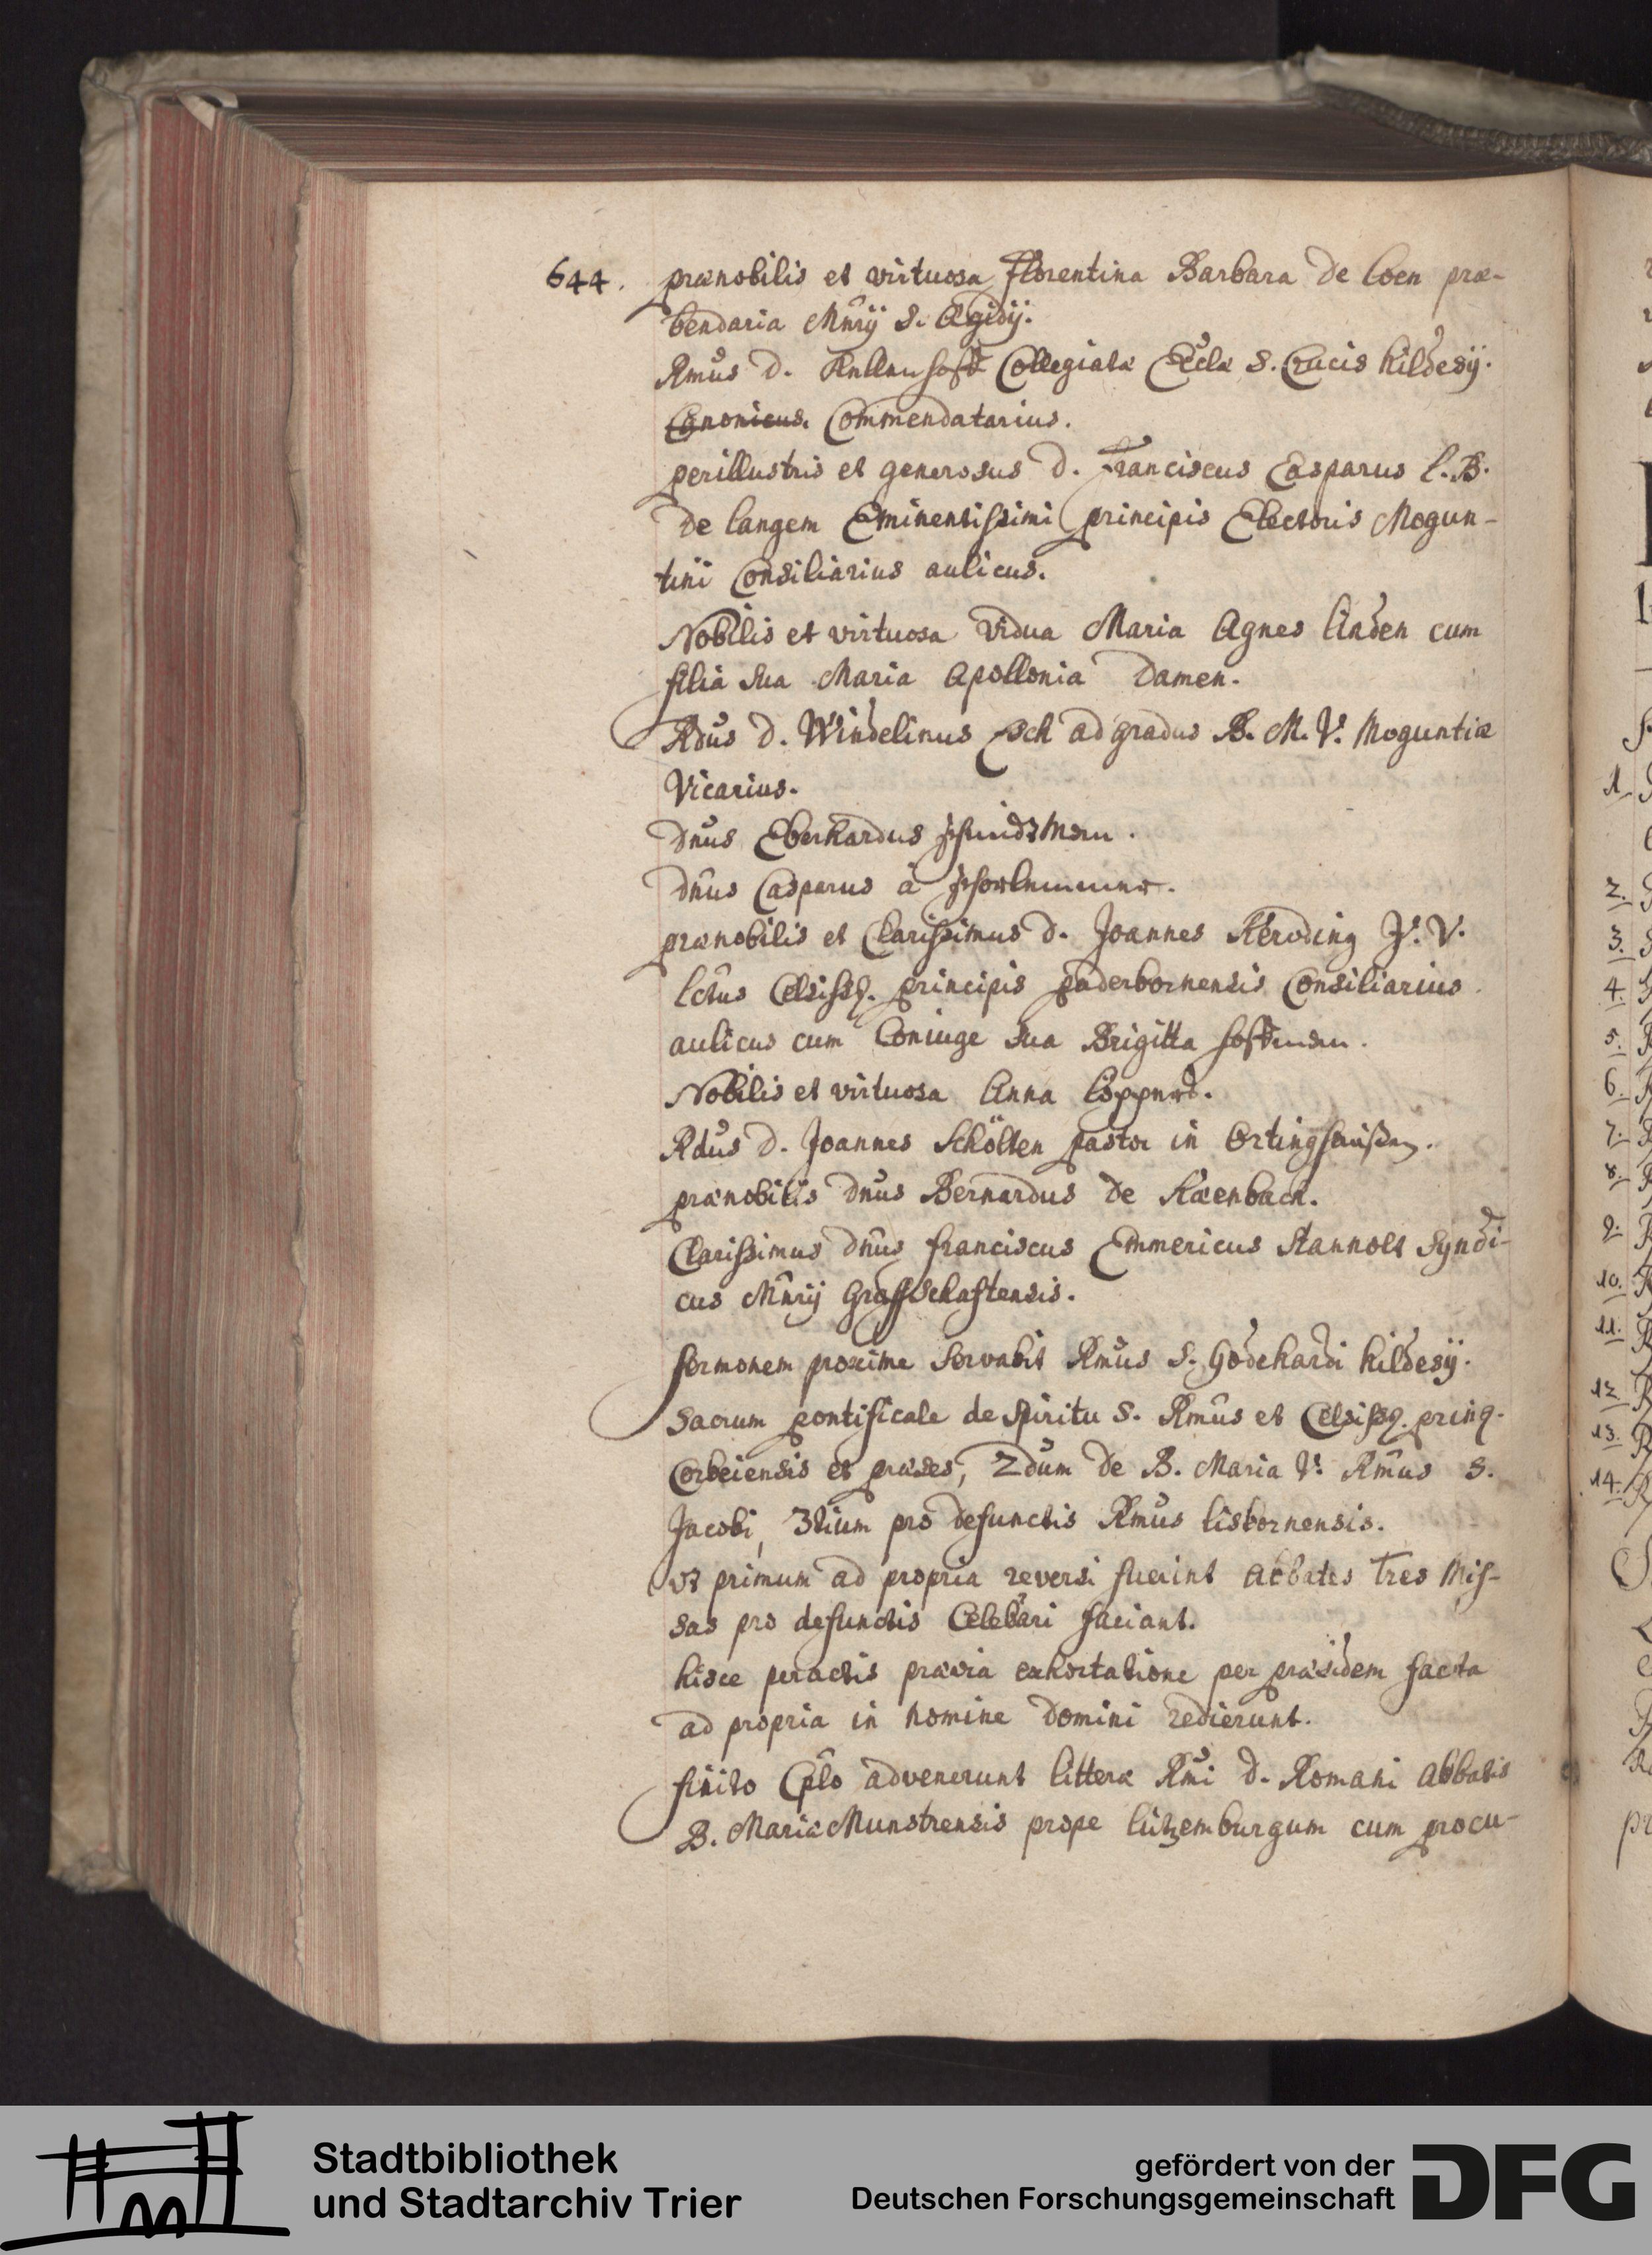 644. prænobilis et virtuosa Florentina Barbara de Coen præ-
bendaria Mñrij S. Ægidij.
Rmus D. Kellenhoff Collegiatæ Ecclæ S. Crucis hildesij.
Canonicus. Commendatarius.
perillustris et generosus D. Franciscus Casparus l. B.
de langem Eminentissimi principis Electoris Mogun-
tini Consiliarius aulicus.
Nobilis et virtuosa vidua Maria Agnes linden cum
filia sua Maria Apollonia Damen.
Rdus D. Windelinus Esch ad gradus B. M. V. Moguntiæ
Vicarius.
Dnus Eberhardus
Dnus Casparus a
prænobilis et Clarissimus D. Joannes Keroding J. V.
lctus Celsiss. principis paderbornensis Consiliarius
aulicus cum Coniuge sua Brigitta
Nobilis et virtuosa Anna
Rdus D. Joannes Schölten pastor in Ortinghausen.
prænobilis dnus Bernardus de Kaenbach.
Clarissimus dnus franciscus Emmericus Stannoet Syndi-
cus Mñrij Graffschaftensis.
sermonem proxime servabit Rmus S. Godehardi hildesij.
Sacrum pontificale de Spiritu S. Rmus et Celsiss. princ.
Corbeiensis et præses, 2dum de B. Maria V. Rmus S.
Jacobi, 3tium pro defunctis Rmus lisbornensis.
vt primum ad propria reversi fuerint abbates tres Mis-
sas pro defunctis Celebrari faciant.
hisce peractis prævia exhortatione per præsidem facta
ad propria in nomine Domini redierunt.
finito Cplo advenerunt litteræ Rmi D. Romani abbatis
B. Mariæ Munstrensis prope lützemburgum cum procu-
1.
2.
3.
4.
5.
6.
7.
8.
9.
10.
11.
12.
13.
14.
Stadtbibliothek
und Stadtarchiv Trier
gefördert von der
Deutschen Forschungsgemeinschaft
DFG